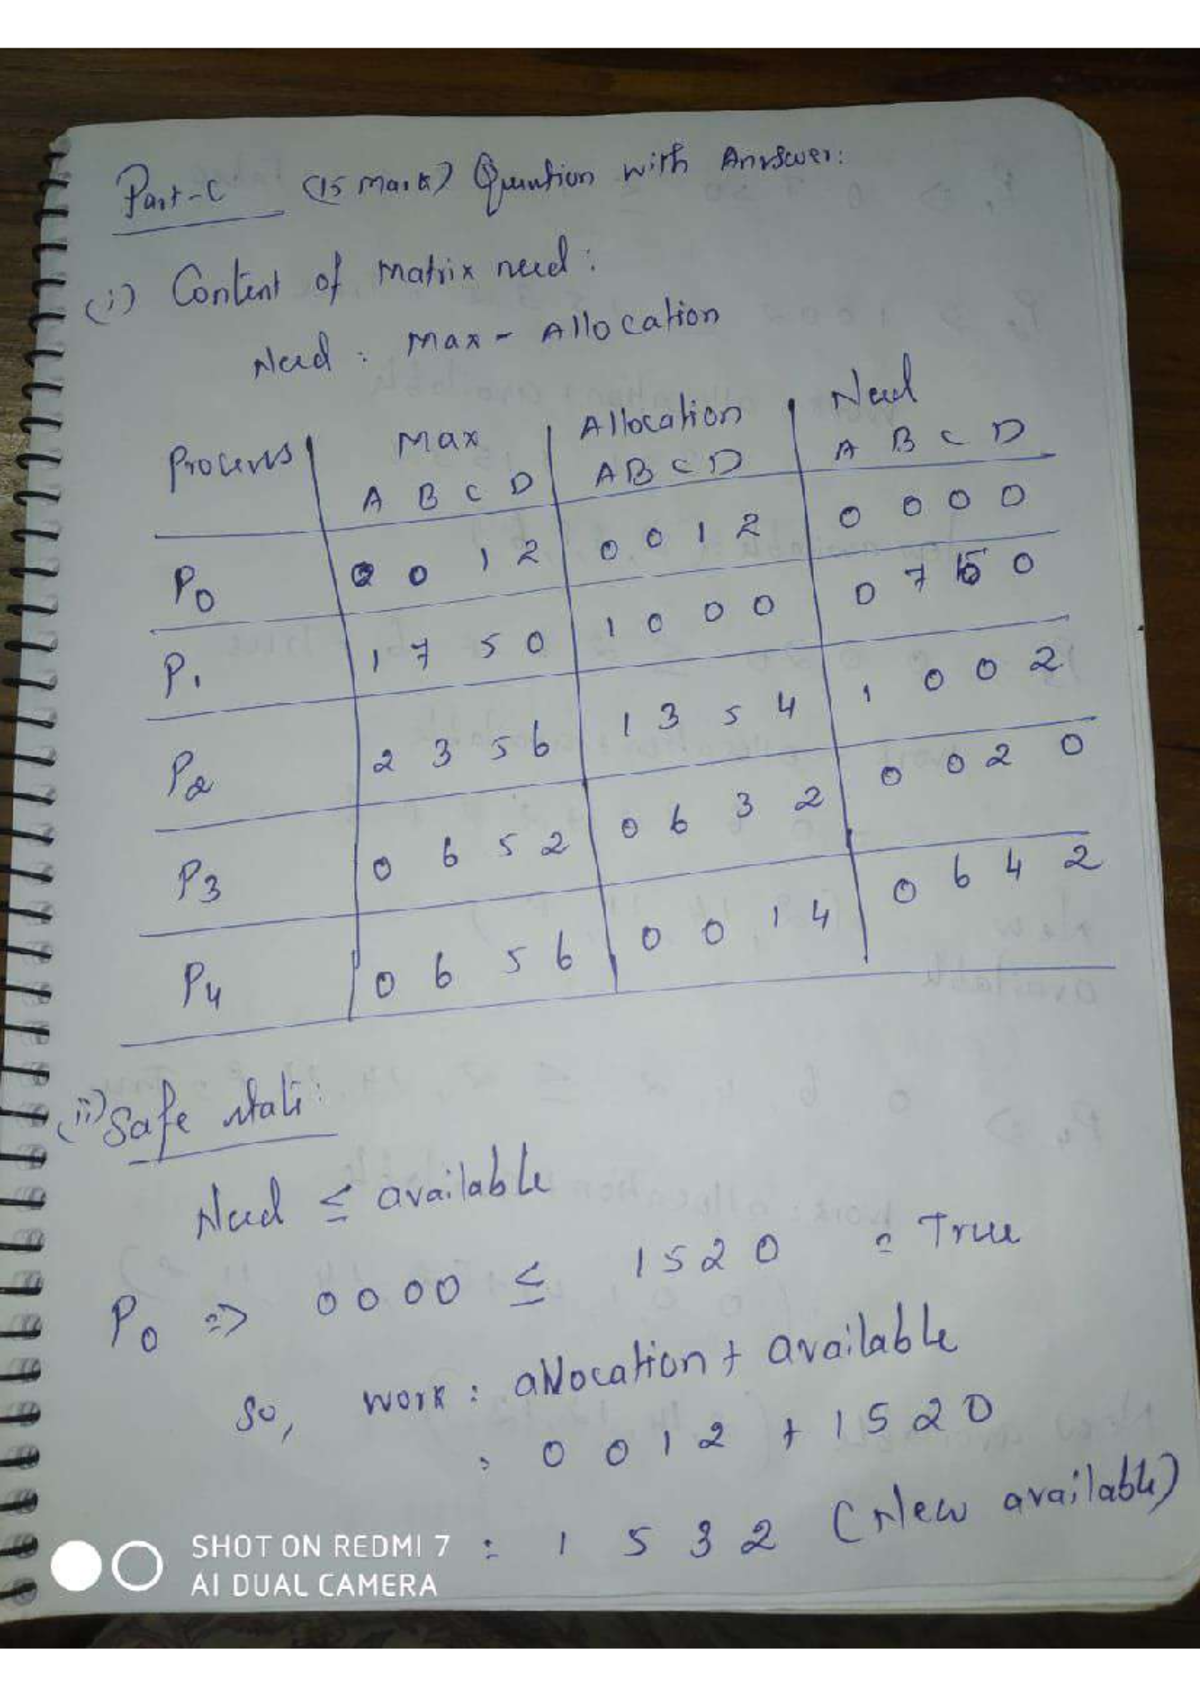 Part-C (15 Mark) Question with Answer:
(i) Content of Matrix need:
Need : Max - Allocation
Process Max Allocation Need
A B C D A B C D A B C D
P0 0 0 1 2 0 0 1 2 0 0 0 0
P1 1 7 5 0 1 0 0 0 0 7 5 0
P2 2 3 5 6 1 3 5 4 1 0 0 2
P3 0 6 5 2 0 6 3 2 0 0 2 0
P4 0 6 5 6 0 0 1 4 0 6 4 2
(ii) Safe state:
Need ≤ available
P0 => 0000 ≤ 1520 = True
So, work = allocation + available
= 0012 + 1520
= 1 5 3 2 (New available)
SHOT ON REDMI 7
AI DUAL CAMERA